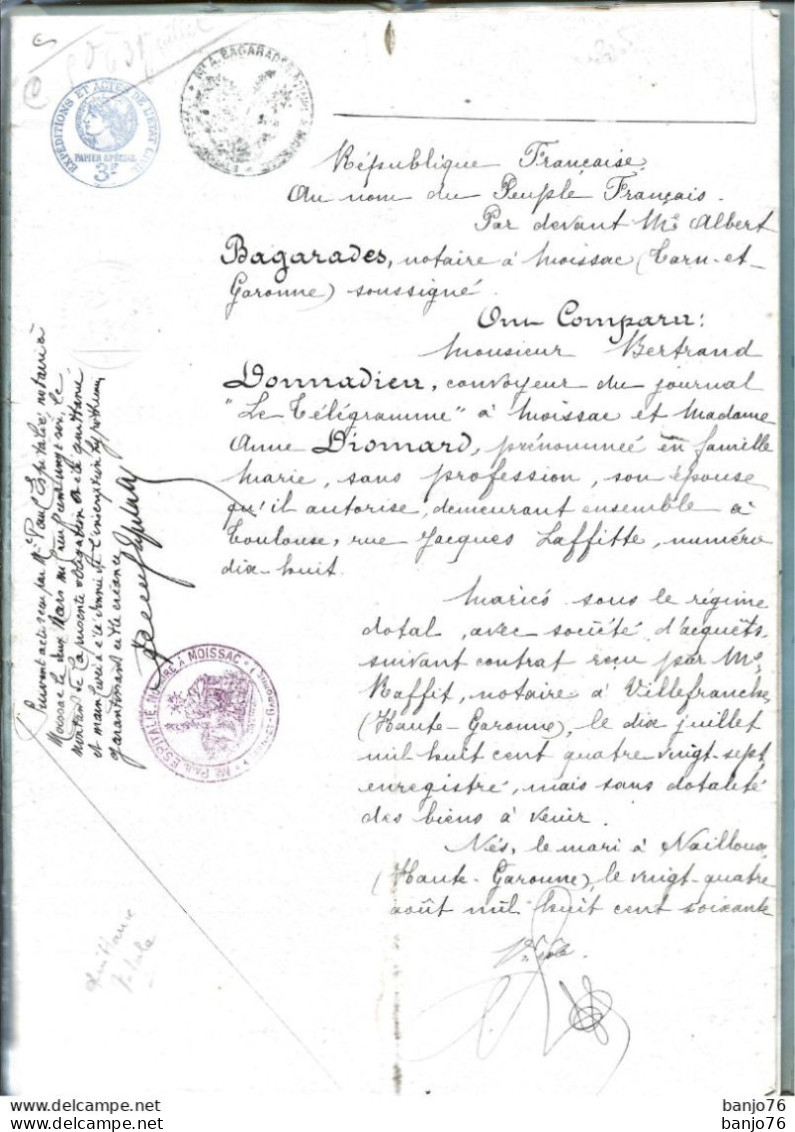 EXPÉDITIONS ET ACTES DE L'ÉTAT CIVIL
PAPIER SPÉCIAL
3F
Mᵉ A. BAGARADES
République Française
Au nom du Peuple Français.
Par devant Mᵉ Albert
Bagarades, notaire à Moissac (Tarn-et-
Garonne) soussigné.
Ont Comparu:
Monsieur Bertrand
Donnadieu, convoyeur du journal
"Le Télégramme" à Moissac et Madame
Anne Diomard, prénommée en famille
Marie, sans profession, son épouse
qu'il autorise, demeurant ensemble à
Toulouse, rue Jacques Laffitte, numéro
dix-huit.
Mariés sous le régime
dotal, avec société d'acquêts,
suivant contrat reçu par Mᵉ
Raffit, notaire à Villefranche
(Haute-Garonne), le dix juillet
mil huit cent quatre vingt sept,
enregistré, mais sans dotalité
des biens à venir.
Nés, le mari à Nailloux
(Haute-Garonne), le vingt-quatre
août mil huit cent soixante
Suivant acte reçu par Mᵉ Paul Espitalié notaire à
Moissac le deux Mars mil neuf cent onze, le
montant de la présente obligation a été quittancé
et mainlevée a été donnée de l'inscription hypothécaire
garantissant cette créance
Mᵉ PAUL ESPITALIÉ NOTAIRE À MOISSAC
(TARN-ET-GARONNE)
Quittance
totale
banjo76
banjo76